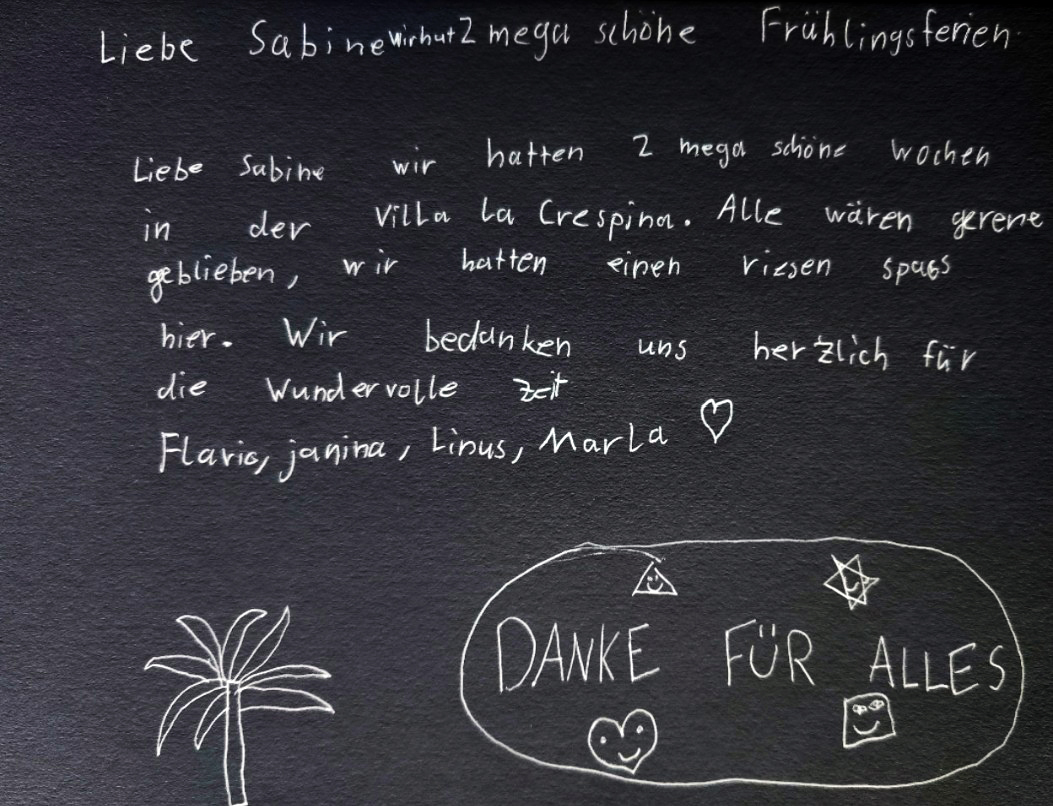 Liebe Sabine wir hut 2 mega schöne Frühlingsferien.
Liebe Sabine wir hatten 2 mega schöne Wochen
in der Villa La Crespina. Alle wären gerene
geblieben, wir hatten einen riesen spass
hier. Wir bedanken uns herzlich für
die Wundervolle zeit
Flavio, janina, Linus, Marla ♡
DANKE FÜR ALLES